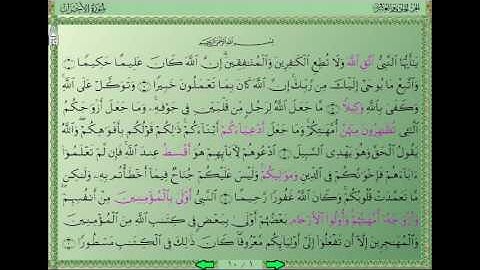 سورة الأحزاب الجزء الحادي والعشرون
بسم الله الرحمن الرحيم
يَٰٓأَيُّهَا ٱلنَّبِيُّ ٱتَّقِ ٱللَّهَ وَلَا تُطِعِ ٱلْكَٰفِرِينَ وَٱلْمُنَٰفِقِينَ إِنَّ ٱللَّهَ كَانَ عَلِيمًا حَكِيمًا ١
وَٱتَّبِعْ مَا يُوحَىٰٓ إِلَيْكَ مِن رَّبِّكَ إِنَّ ٱللَّهَ كَانَ بِمَا تَعْمَلُونَ خَبِيرًا ٢ وَتَوَكَّلْ عَلَى ٱللَّهِ
وَكَفَىٰ بِٱللَّهِ وَكِيلًا ٣ مَّا جَعَلَ ٱللَّهُ لِرَجُلٍ مِّن قَلْبَيْنِ فِي جَوْفِهِۦ وَمَا جَعَلَ أَزْوَٰجَكُمُ
ٱلَّٰٓـِٔي تُظَٰهِرُونَ مِنْهُنَّ أُمَّهَٰتِكُمْ وَمَا جَعَلَ أَدْعِيَآءَكُمْ أَبْنَآءَكُمْ ذَٰلِكُمْ قَوْلُكُم بِأَفْوَٰهِكُمْ وَٱللَّهُ
يَقُولُ ٱلْحَقَّ وَهُوَ يَهْدِي ٱلسَّبِيلَ ٤ ٱدْعُوهُمْ لِأٓبَآئِهِمْ هُوَ أَقْسَطُ عِندَ ٱللَّهِ فَإِن لَّمْ تَعْلَمُوٓا۟
ءَابَآءَهُمْ فَإِخْوَٰنُكُمْ فِي ٱلدِّينِ وَمَوَٰلِيكُمْ وَلَيْسَ عَلَيْكُمْ جُنَاحٌ فِيمَآ أَخْطَأْتُم بِهِۦ وَلَٰكِن
مَّا تَعَمَّدَتْ قُلُوبُكُمْ وَكَانَ ٱللَّهُ غَفُورًا رَّحِيمًا ٥ ٱلنَّبِيُّ أَوْلَىٰ بِٱلْمُؤْمِنِينَ مِنْ أَنفُسِهِمْ
وَأَزْوَٰجُهُۥٓ أُمَّهَٰتُهُمْ وَأُو۟لُوا۟ ٱلْأَرْحَامِ بَعْضُهُمْ أَوْلَىٰ بِبَعْضٍ فِي كِتَٰبِ ٱللَّهِ مِنَ ٱلْمُؤْمِنِينَ
وَٱلْمُهَٰجِرِينَ إِلَّآ أَن تَفْعَلُوٓا۟ إِلَىٰٓ أَوْلِيَآئِكُم مَّعْرُوفًا كَانَ ذَٰلِكَ فِي ٱلْكِتَٰبِ مَسْطُورًا ٦